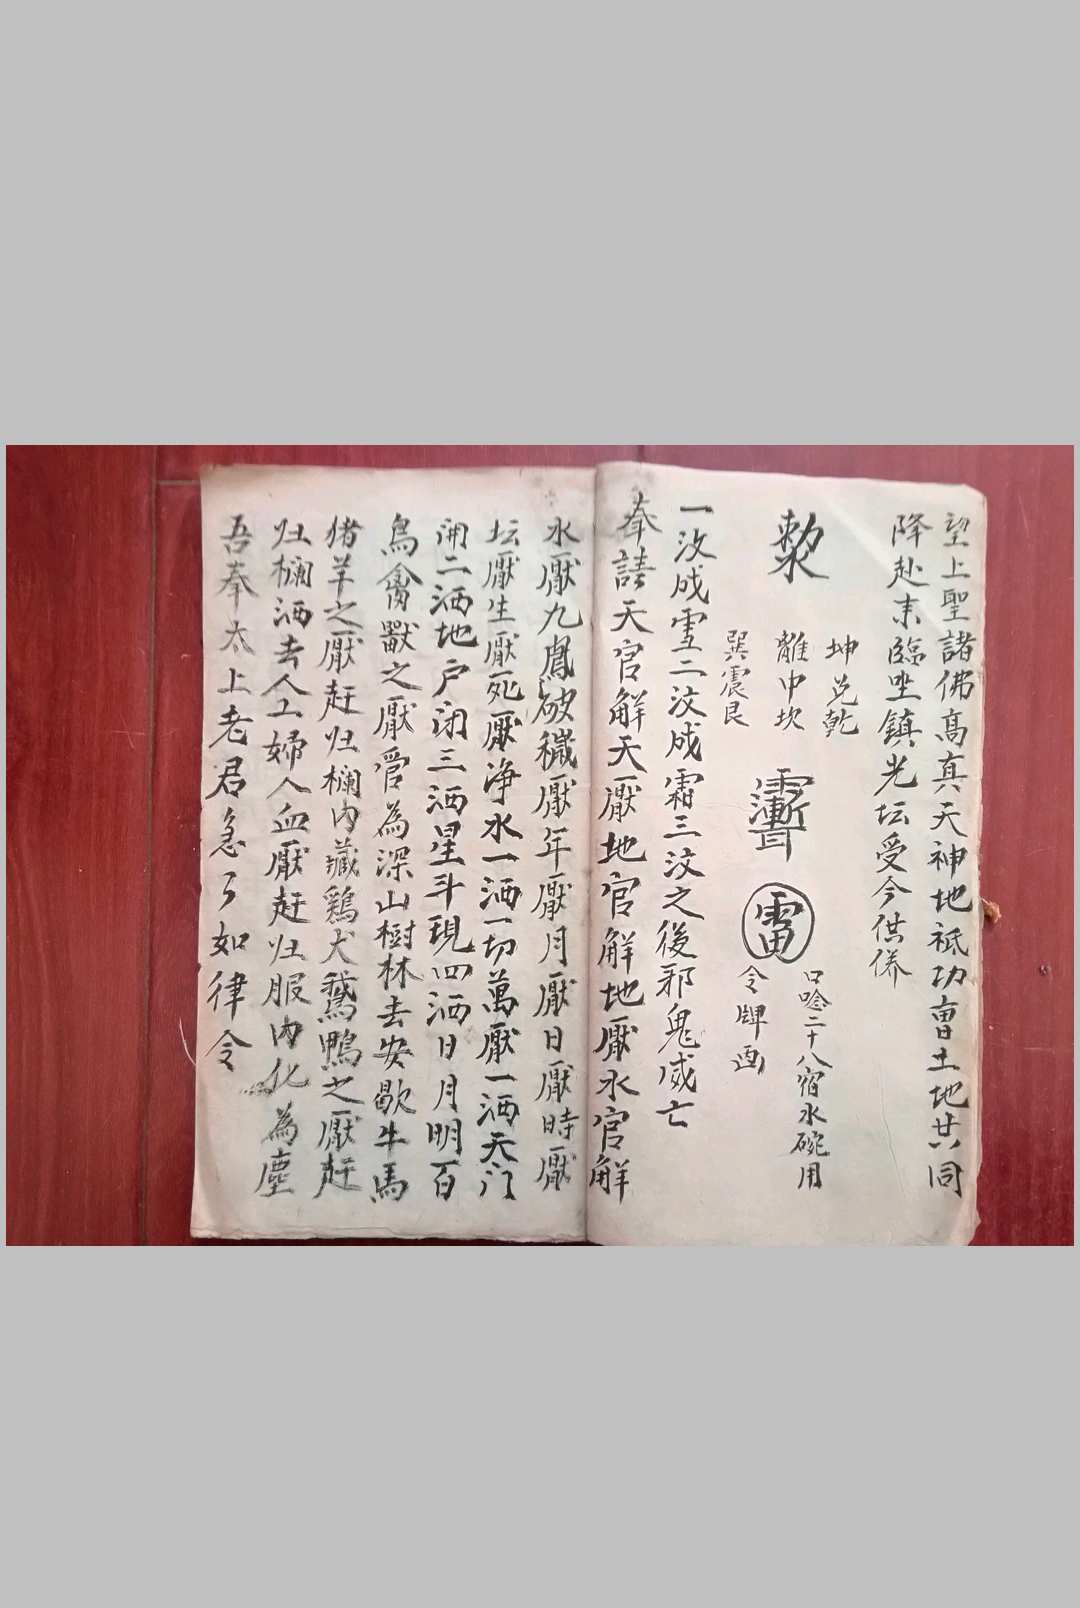 望上聖諸佛髙真天神地祗功曹土地廿同
降赴来臨坐鎮光坛受今供养
坤兑乾
離中坎
巽震艮
口唸二十八宿水碗用
敕
雷
令牌画
一汶成雪二汶成霜三汶之後邪鬼威亡
奉請天官解天厭地官解地厭水官解
水厭九鳳破穢厭年厭月厭日厭時厭
坛厭生厭死厭净水一洒一切萬厭一洒天门
開二洒地户闭三洒星斗現四洒日月明百
鳥禽獸之厭官為深山樹林去安歇牛馬
猪羊之厭赶归欄内藏鷄犬鵝鴨之厭赶
归欄洒去人工婦人血厭赶归服内化為塵
吾奉太上老君急了如律令